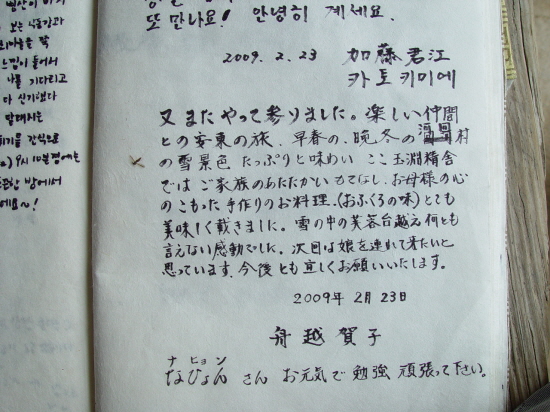 느낌이 들어서
나를 기다리고
다 신기했다
방에서
또 만나요! 안녕히 계세요.
2009. 2. 23 加藤君江
카토키미에
又 またやって参りました。楽しい仲間
との安東の旅、早春の、晩冬の 村
の雪景色 たっぷりと味わい ここ玉淵精舎
では ご家族のあたたかいもてなし、お母様の心
のこもった手作りのお料理、(おふくろの味)とても
美味しく戴きました。雪の中の芙蓉台越え何とも
言えない感動でした。次回は娘を連れて来たいと
思っています。今後とも宜しくお願いいたします。
2009年 2月 23日
舟越賀子
ナヒョン
なひょん さん お元気で 勉強 頑張って下さい。